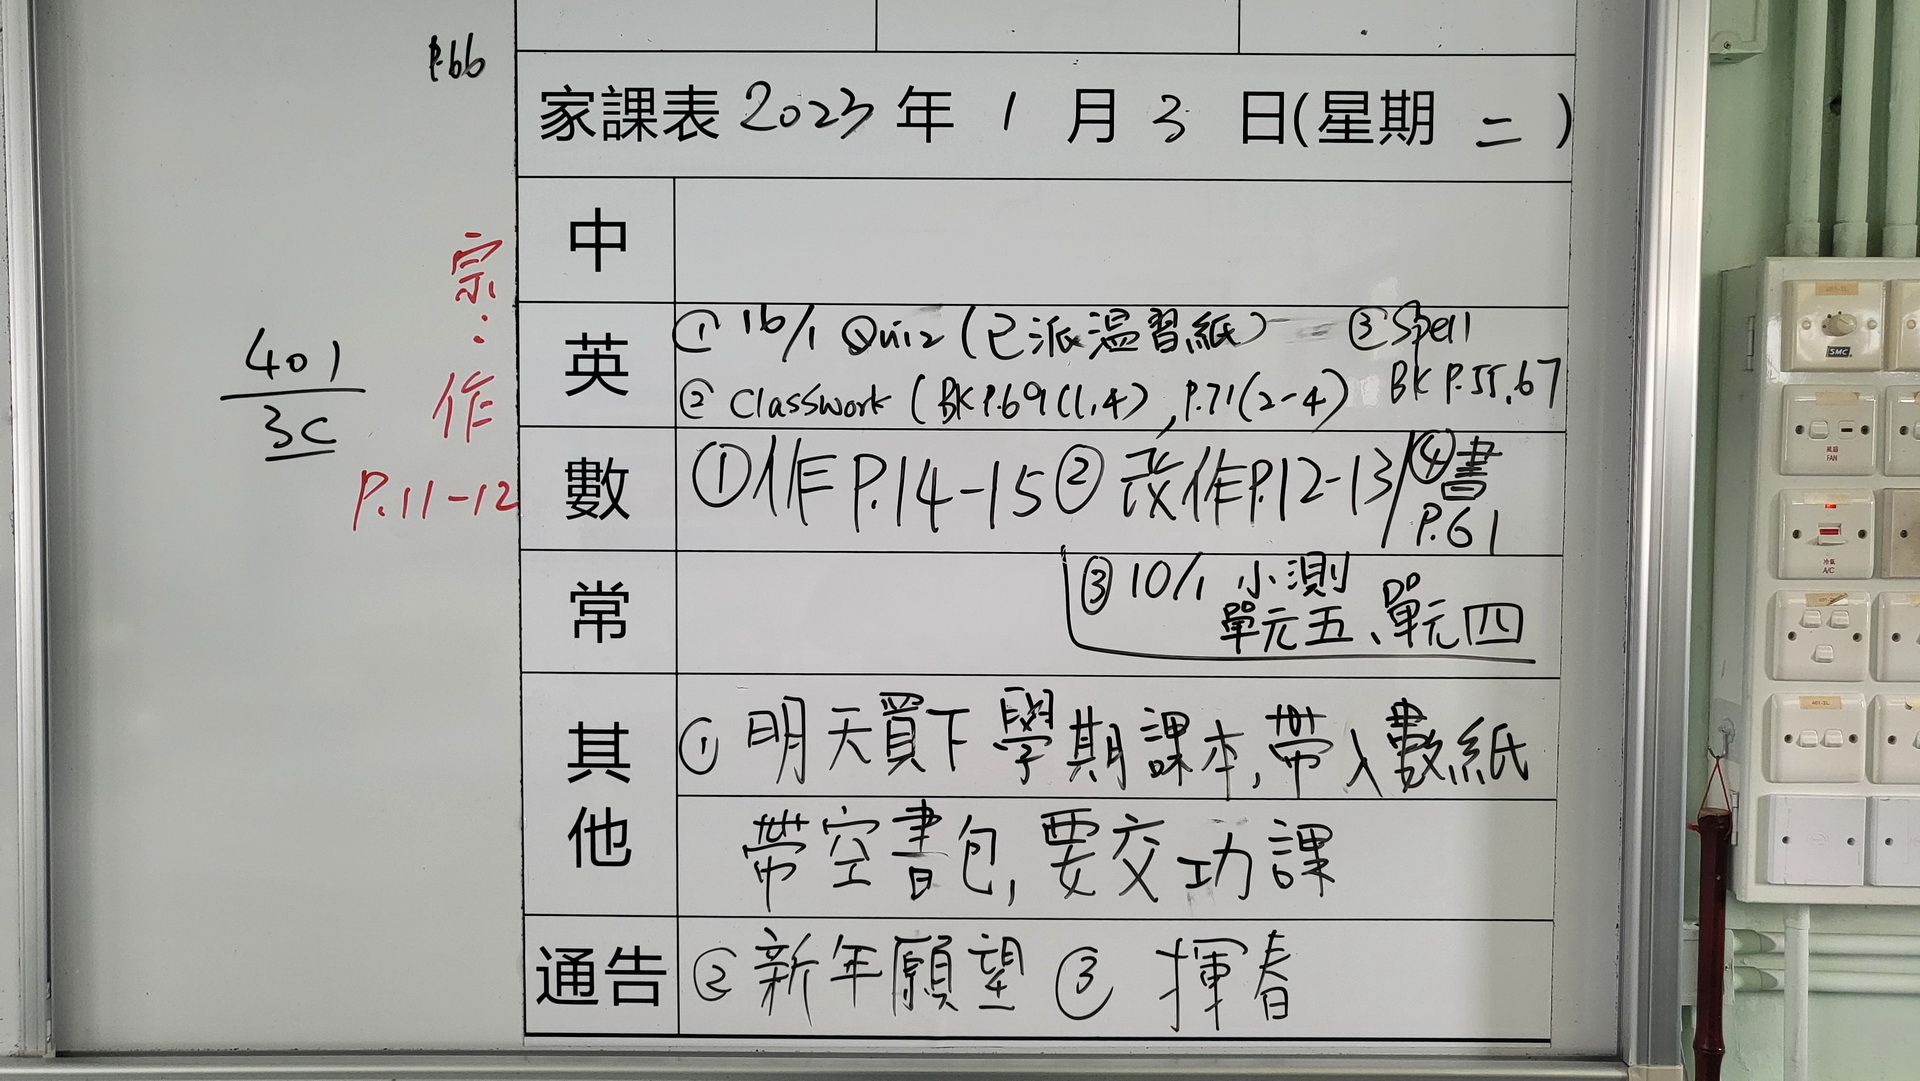 P.66
家課表 2023 年 1 月 3 日(星期 二 )
中
宗:作
P.11-12
401
3C
英
① 16/1 Quiz (已派温習紙) ③ Spell
② Classwork (BK P.69(1,4), P.71(2-4) BK P.55,67
數
① 作 P.14-15 ② 改作 P.12-13 ④書
P.61
常
③ 10/1 小測
單元五、單元四
其他
① 明天買下學期課本,帶入數紙
帶空書包,要交功課
通告
② 新年願望 ③ 揮春
SMC
FAN
A/C